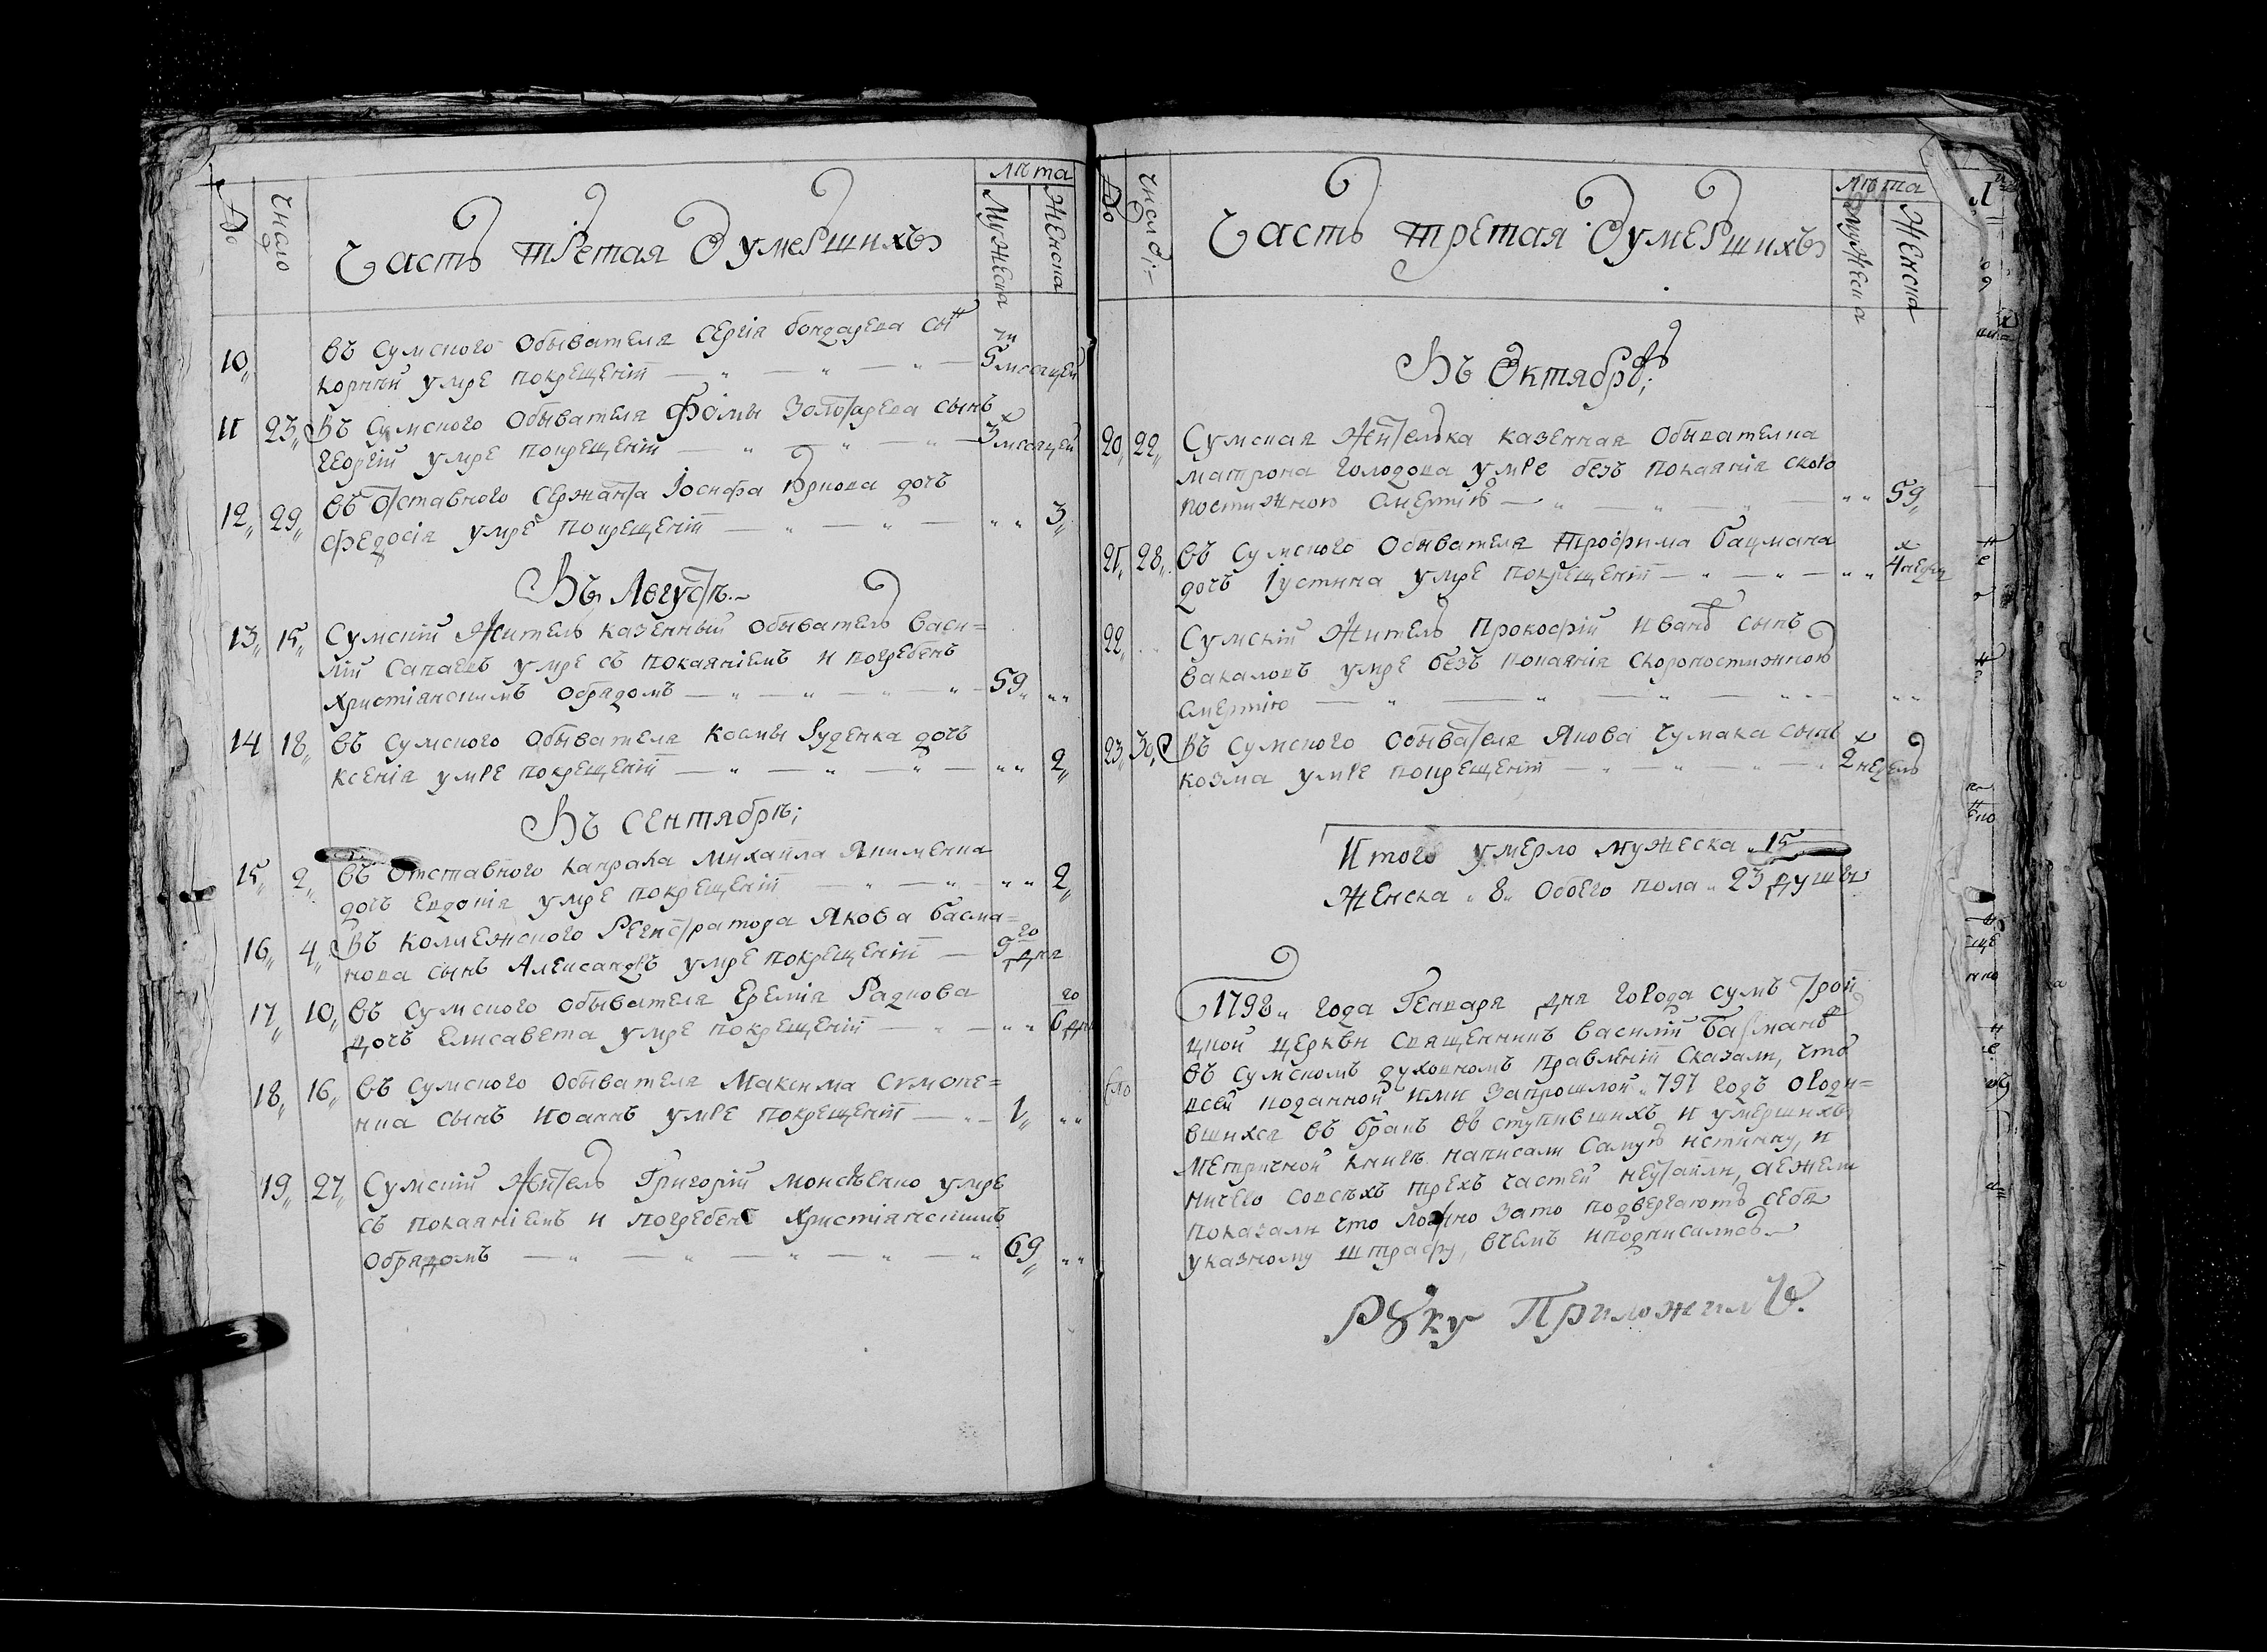 лѣта
№
число
Часть третая Оумершихъ
Мужеска
Женска
10,, Въ Сумского Обывателя Сергія бондарева сын
корній умре покрещеніи 5 месяцей
11 23,, Въ Сумского Обывателя Фомы Золотарева сынъ
Георгій умре покрещеніи 3 месяцей
12,, 29,, Въ Отставного Сержанта Іосифа дочь
Федосія умре покрещеніи 3,,
Въ Августѣ
13,, 15,, Сумскій Житель казенный обыватель Васи=
лій Сапаевъ умре съ покаяніемъ и погребенъ
Христіанскимъ Обрядомъ 59,,
14 18,, Въ Сумского Обывателя Космы Руденка дочь
Ксенія умре покрещеніи 2,,
Въ Сентябрѣ;
15,, 2,, Въ Отставного капрала Михаила Якименка
дочь Евдокія умре покрещеніи 2,,
16,, 4,, Въ Коллежского Регистратора Якова басма=
нова сынъ Александръ умре покрещеніи 9 го дня
17,, 10,, Въ Сумского обывателя Еремія Радкова
дочь Елисавета умре покрещеніи 6 го дня
18,, 16,, Въ Сумского Обывателя Максима Симоне=
нка сынъ Иоаннъ умре покрещеніи 1,,
19,, 27,, Сумскій Житель Григорій Моисѣенко умре
съ покаяніемъ и погребенъ Христіанскимъ
Обрядомъ 69,,
лѣта
№
число
Часть третая Оумершихъ
Мужеска
Женска
Въ Октябрѣ;
20,, 22,, Сумская Жителька казенная Обывателка
матрона Голодова умре безъ покаянія скоро
постижною Смертію 59,,
21,, 28,, Въ Сумского Обывателя Трофима бацмана
дочь Іустина умре покрещеніи 4 недел
22,, Сумскій Житель Прокофій Иванъ сынъ
Вакаловъ умре безъ покаянія Скоропостижною
смертію
23,, 30,, Въ Сумского Обывателя Якова Чумака сынъ
козма умре покрещеніи 2 недель
Итого умерло мужеска 15
Женска 8 Обоего пола 23 души
1798 года Генваря дня города сумъ Трои
цкой церкви Священникъ Василій Басмановъ
въ Сумскомъ духовномъ правленіи Сказали, что
всей поданной ими Запрошлой 797 годъ ороди=
вшихся въ бракъ въступившихъ и умершихъ
Метричной книгѣ написали Самую истинну, и
ничего совсѣхъ трехъ частей неутаили, аежели
показали что ложно Зато подвергаютъ себя
указному штрафу, вчемъ иподписались
Руку Приложилъ